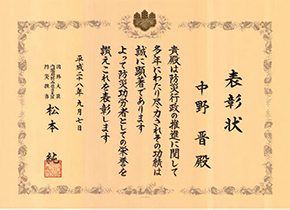 表彰状
中野晋殿
貴殿は防災行政の推進に関して
多年にわたり尽力されその功績は
誠に顕著であります
よって防災功労者としての栄誉を
讃えこれを表彰します
平成二十八年九月七日
国務大臣
防災担当
松本純